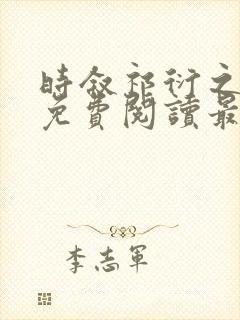 時叙祁衍之
免費閱讀最
李志軍